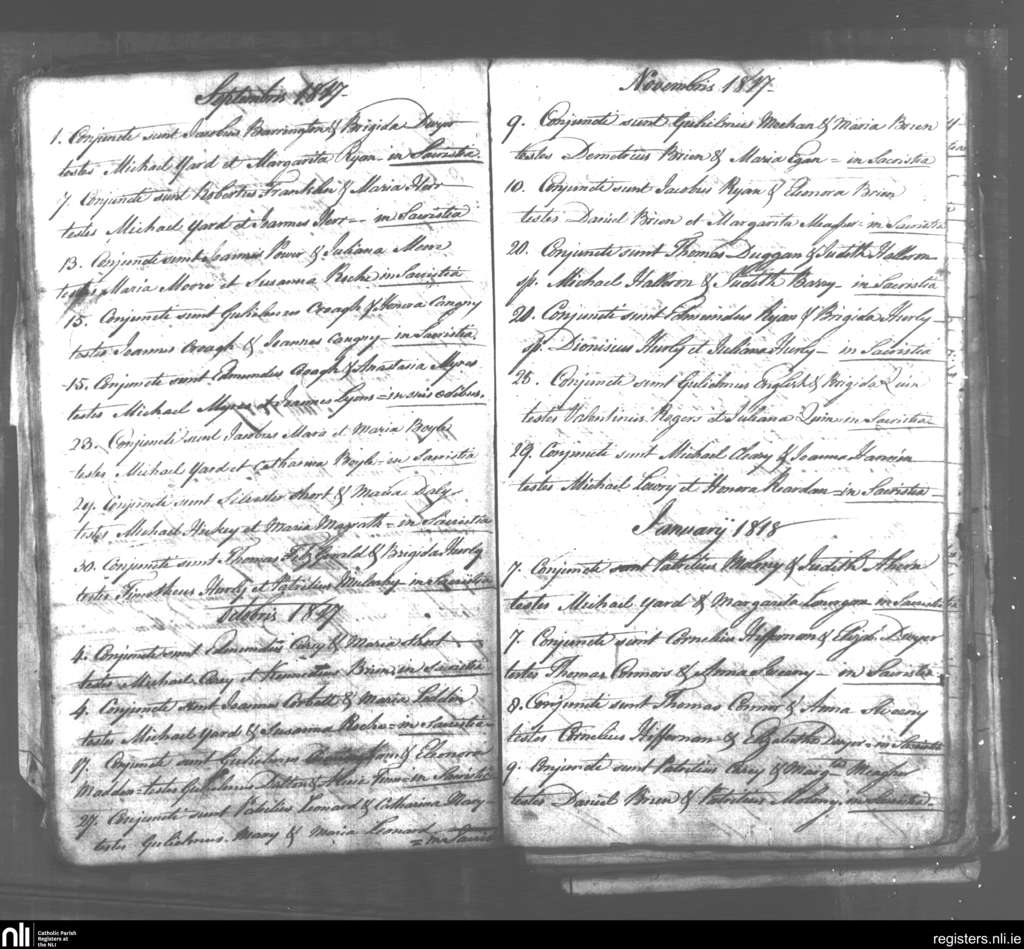 Septembris 1817-
1. Conjuncti sunt Jacobus Barrington & Brigida Dwyer
testes Michael Yard et Margarita Ryan - in Sacristia
7. Conjuncti sunt Robertus Franklin & Maria
testes Michael Yard et Joannes - in Sacristia
13. Conjuncti sunt Joannes Power & Juliana
testes Maria Moore et Susanna Roche in Sacristia
15. Conjuncti sunt Gulielmus Croagh & Honora Cangny
testes Joannes Croagh & Joannes Cangny - in Sacristia
15. Conjuncti sunt Edmundus Croagh & Anastasia Myres
testes Michael Myres et Joannes Lyons = in suis edibus.
23. Conjuncti sunt Jacobus Mara et Maria Boyle
testes Michael Yard et Catharina Boyle - in Sacristia
29. Conjuncti sunt Silvester Short & Maria Daly
testes Michael Hickey et Maria Magrath - in Sacristia
30. Conjuncti sunt Thomas FitzGerald & Brigida Hurly
testes Timotheus Hurly et Patritius Mulcahy - in Sacristia
Octobris 1817
4. Conjuncti sunt Edmundus Carey & Maria Short
testes Michael Carey et Brien in Sacristia
4. Conjuncti sunt Joannes Corbett & Maria
testes Michael Yard & Susanna Roche - in Sacristia
17. Conjuncti sunt Gulielmus & Elenora
Madden - testes Gulielmus Dalton & - in Sacristia
27. Conjuncti sunt Patritius Leonard & Catharina Mary
testes Gulielmus Mary & Maria Leonard
= in Sacris
Novembris 1817-
9. Conjuncti sunt Gulielmus Meehan & Maria Brien
testes Demetrius Brien & Maria Egan = in Sacristia
10. Conjuncti sunt Jacobus Ryan & Elenora Brien
testes Daniel Brien et Margarita Meagher - in Sacristia
20. Conjuncti sunt Thomas Duggan & Judith Halloron
sp. Michael Halloron & Judith Barry - in Sacristia
20. Conjuncti sunt Edmundus Ryan & Brigida Hurly
sp. Dionisius Hurly et Juliana Hurly - in Sacristia
25. Conjuncti sunt Gulielmus English & Brigida Quin
testes Valentinus Rogers et Juliana Quin - in Sacristia
29. Conjuncti sunt Michael Cleary & Joanna
testes Michael Lowry et Honora Reardan - in Sacristia
Januarij 1818
7. Conjuncti sunt Patritius Molony & Judith Ahern
testes Michael Yard & Margarita Lonergan in Sacristia
7. Conjuncti sunt Cornelius Heffernan & Elizab. Dwyer
testes Thomas Connors & Anna Sweeny - in Sacristia
8. Conjuncti sunt Thomas Connor & Anna Sweeny
testes Cornelius Heffernan & Elizabetha Dwyer - in Sacristia
9. Conjuncti sunt Patritius Carey & Marg.tta Meagher
testes Daniel Brien & Patritius Molony, in Sacristia.
nli Catholic Parish
Registers at
the NLI
registers.nli.ie